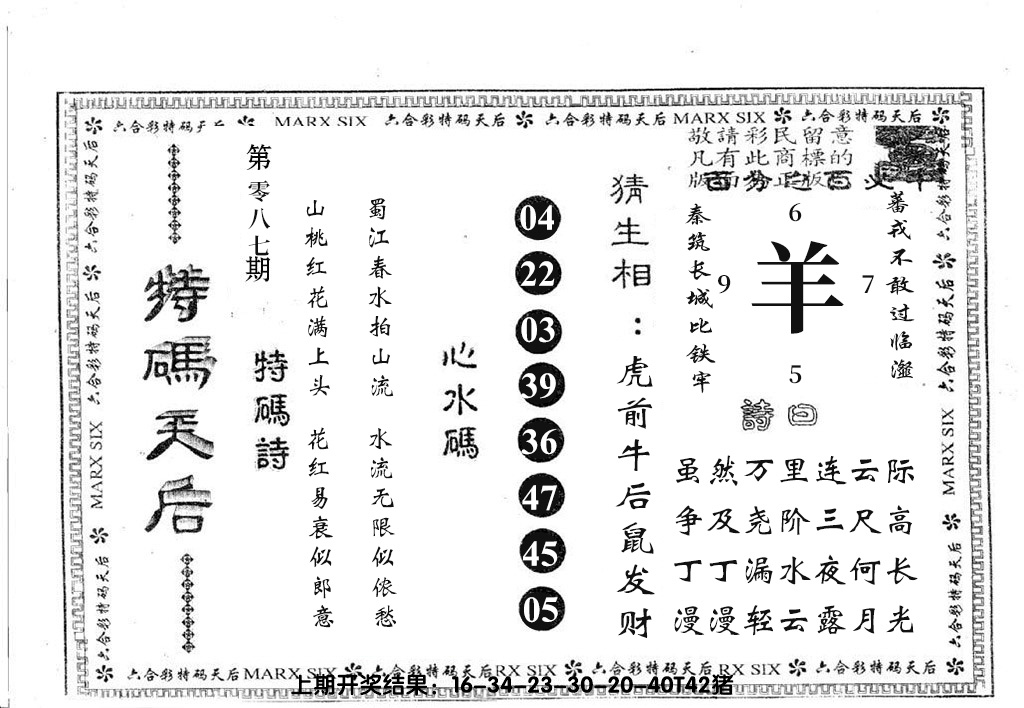 六合彩特码天后 MARX SIX 六合彩特码天后 六合彩特码天后 MARX SIX 六合彩特码天后
敬請彩民留意
凡有此商標的
版面为正版
特碼天后
第零八七期
特碼詩
山桃红花满上头 花红易衰似郎意
蜀江春水拍山流 水流无限似侬愁
心水碼
04
22
03
39
36
47
45
05
猜生相:虎前牛后鼠发财
秦筑长城比铁牢
蕃戎不敢过临洮
6
9 羊 7
5
詩曰
虽然万里连云际
争及尧阶三尺高
丁丁漏水夜何长
漫漫轻云露月光
六合彩特码天后 MARX SIX 六合彩特码天后
六合彩特码天后 MARX SIX 六合彩特码天后
六合彩特码天后MARX SIX 六合彩特码天后RX SIX 六合彩特码天后RX SIX 六合彩特码天后
上期开奖结果：16-34-23-30-20-40T42猪